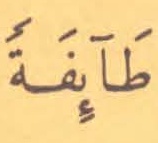 طَآئِفَةَ